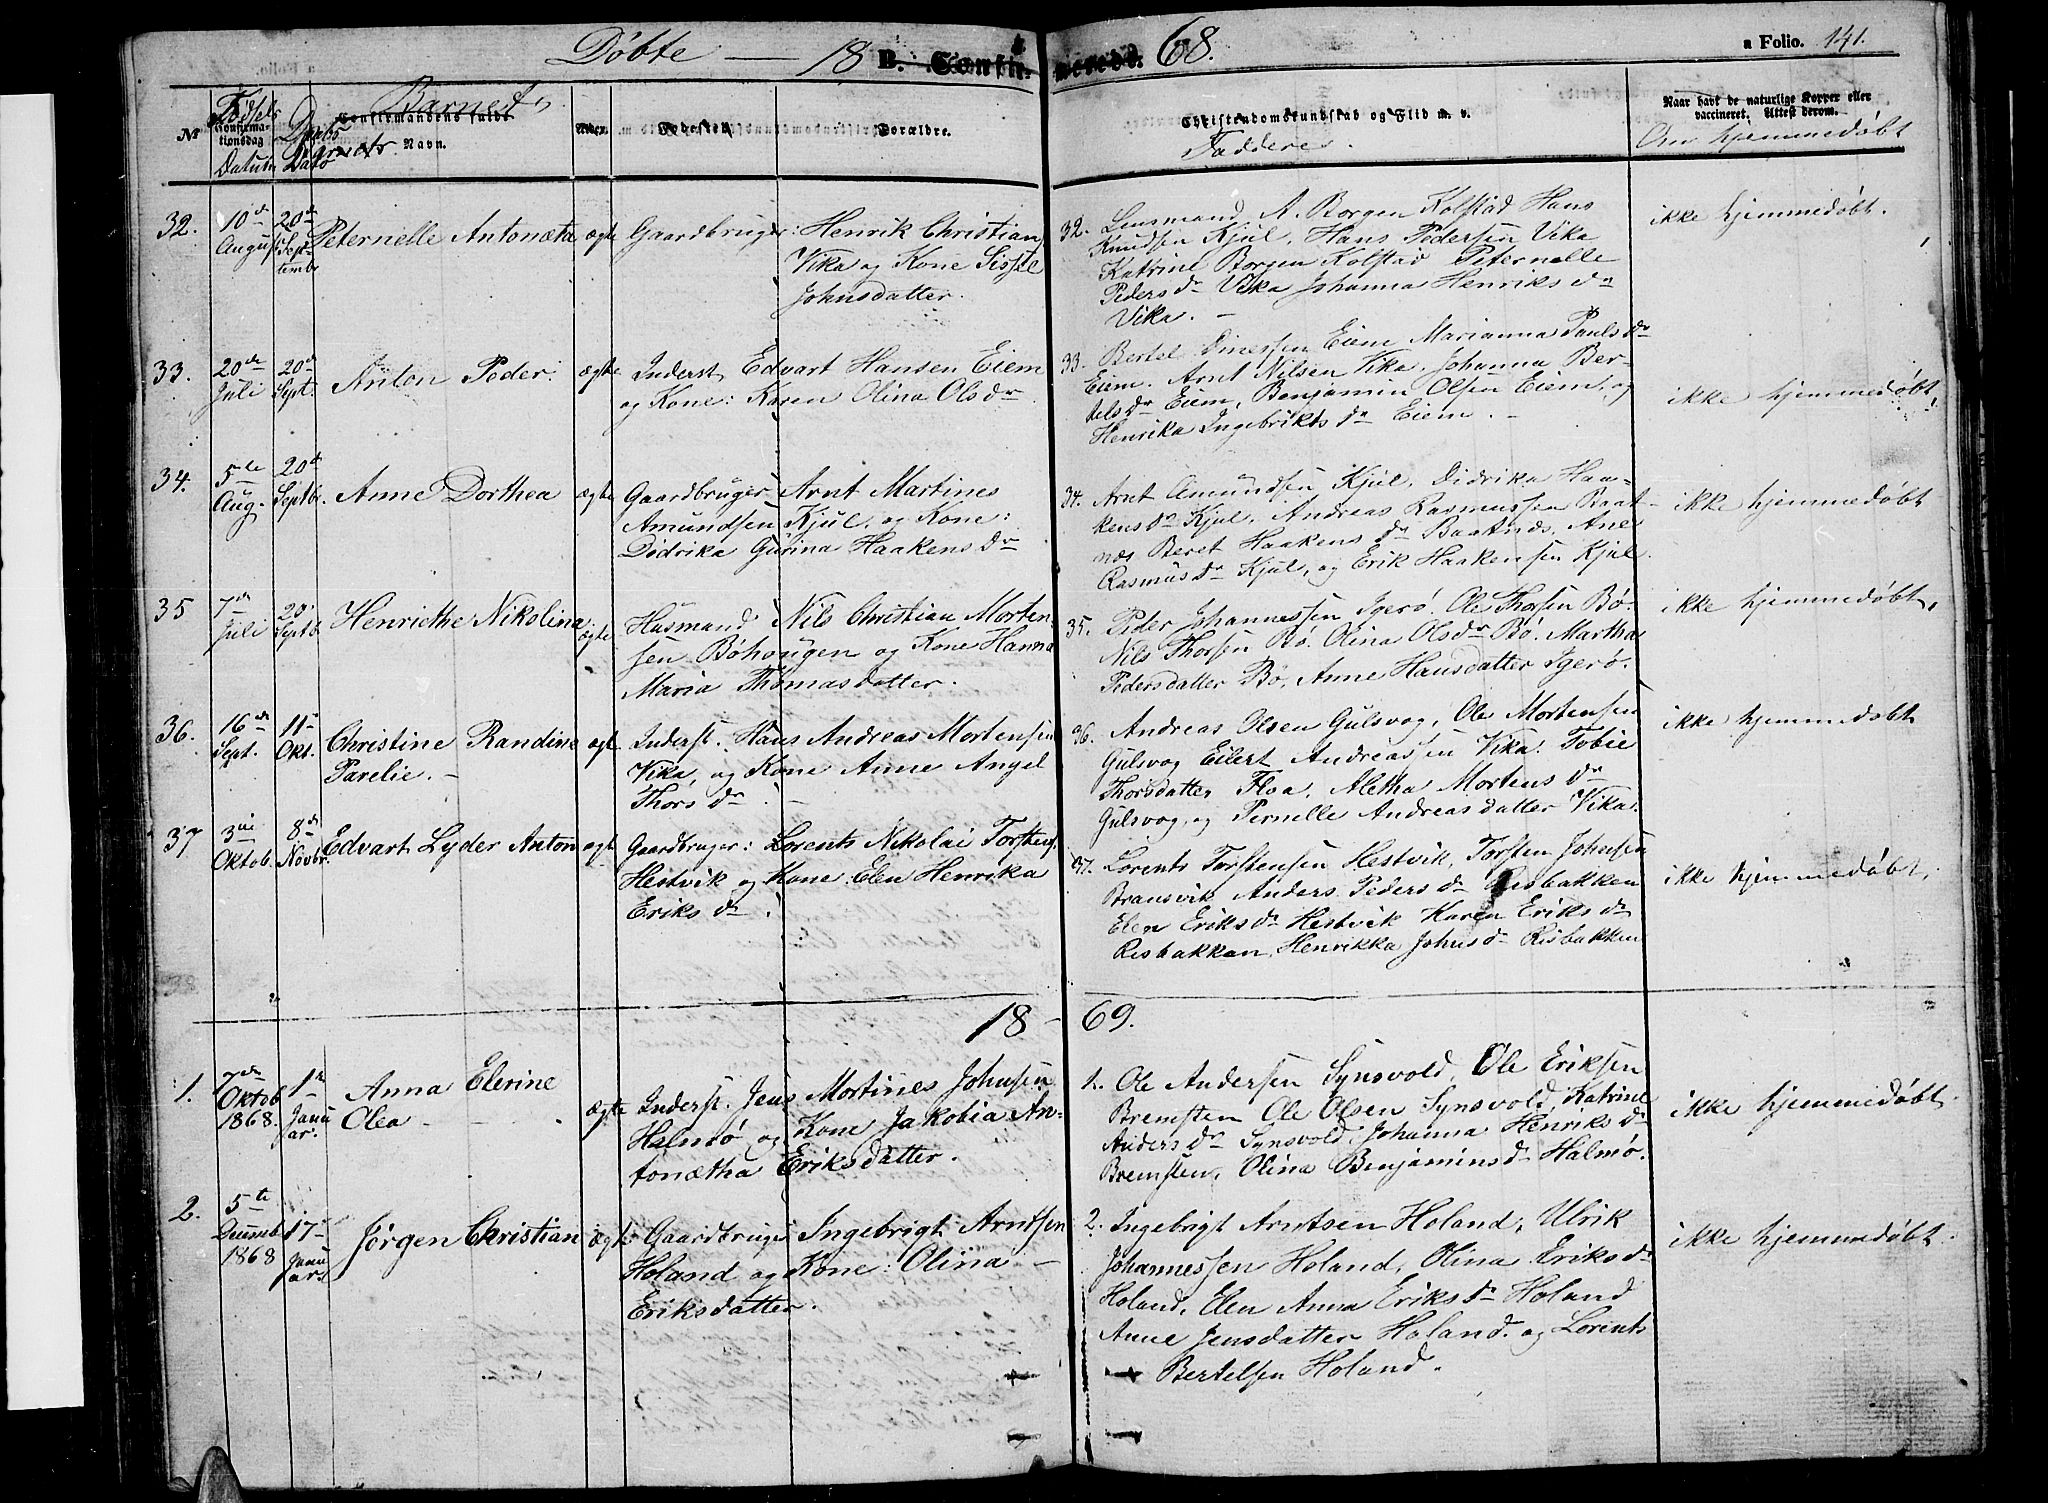 Døbte — 18 B. Confirmerede. 68.
a Folio. 141.
No
Fødsels
Confirma-
tionsdag
Datum
Daabs
Dato
Barnets
Confirmandens fulde
Navn.
Alder.
Fødested
Forældre.
Christendomskundskab og Flid m. v.
Faddere.
Naar havt de naturlige Kopper eller
vaccineret. Attest derom.
Om hjemmedøbt
32. 10de August 20de September Peternelle Antonæta ægte Gaardbruger: Henrik Christian
Vika og Kone Sissel
Johnsdatter.
32. Lensmand A. Borgen Kolstad Hans
Knudsen Kjul, Hans Pedersen Vika
Katrine Borgen Kolstad Peternelle
Pedersdr Vika Johanna Henriksdr
Vika. –
ikke hjemmedøbt.
33. 20de Juli 20de Sept. Anton Peder. ægte Inderst Edvart Hansen Eiem
og Kone: Karen Olina Olsdr
33. Bertel Dinessen Eiem Marianna Paulsdr
Eiem. Arnt Nilsen Vika. Johanna Ber-
telsdr Eiem, Benjamin Olsen Eiem, og
Henrika Ingebriktsdr Eiem. –
ikke hjemmedøbt,
34. 5te Aug. 20de Septb. Anne Dorthea ægte Gaardbruger Arnt Martines
Amundsen Kjul, og Kone:
Didrika Gurina Haakensdr
34. Arnt Amundsen Kjul, Didrika Haa-
kensdr Kjul, Andreas Rasmussen Baat-
næs Beret Haakensdr Baatnæs, Ane
Rasmusdr Kjul, og Erik Haakensen Kjul.
ikke hjemmedøbt
35 7de Juli 20de Septb. Henriethe Nikolina: ægte Husmand Nils Christian Morten-
sen Bøhougen og Kone Hanna
Maria Thomasdatter.
35. Peder Johannessen Igerø. Ole Thorsen Bø.
Nils Thorsen Bø. Olina Olsdr Bø. Martha
Pedersdatter Bø, Anne Hansdatter Igerø.
ikke hjemmedøbt,
36. 16de Sept. 11te Okt. Christine Randine ægte Inderst. Hans Andreas Mortensen
Parelie. – Vika, og Kone Anne Angel
Thorsdr. –
36. Andreas Olsen Gulsvog, Ole Mortensen
Gulsvog Eilert Andreassen Vika. Tobie
Thorsdatter Floa, Aletha Mortensdr
Gulsvog, og Pernelle Andreasdatter Vika.
ikke hjemmedøbt
37 3die Oktob. 8de Novbr. Edvart Lyder Anton ægte Gaardbruger: Lorents Nikolai Torstens.
Hestvik og Kone Elen Henrika
Eriksdr.
37. Lorents Torstensen Hestvik, Torsten Johnsen
Bransvik Anders Pedersdr Risbakken
Elen Eriksdr Hestvik Karen Eriksdr
Risbakken, Henrikka Johnsdr Risbakken
ikke hjemmedøbt,
18 – 69.
1. 7de Oktob 1868. 1te Januar. Anna Elerine
Olea – ægte Inderst. Jens Mortines Johnsen
Halmø og Kone Jakobia An-
tonætha Eriksdatter.
1. Ole Andersen Synsvold, Ole Eriksen
Bremsten Ole Olsen Synsvold, Katrine
Andersdr Synsvold, Johanna Henriksdr
Bremsten, Olina Benjaminsdr Halmø.
ikke hjemmedøbt.
2. 5te Decemb 1868 17de Januar Jørgen Christian ægte Gaardbruger Ingebrigt Arntsen
Holand og Kone: Olina –
Eriksdatter.
2. Ingebrigt Arntsen Holand, Ulrik
Johannessen Holand, Olina Eriksdr
Holand, Elen Anna Eriksdr Holand
Anne Jensdatter Holand. og Lorents
Bertelsen Holand.
ikke hjemmedøbt.